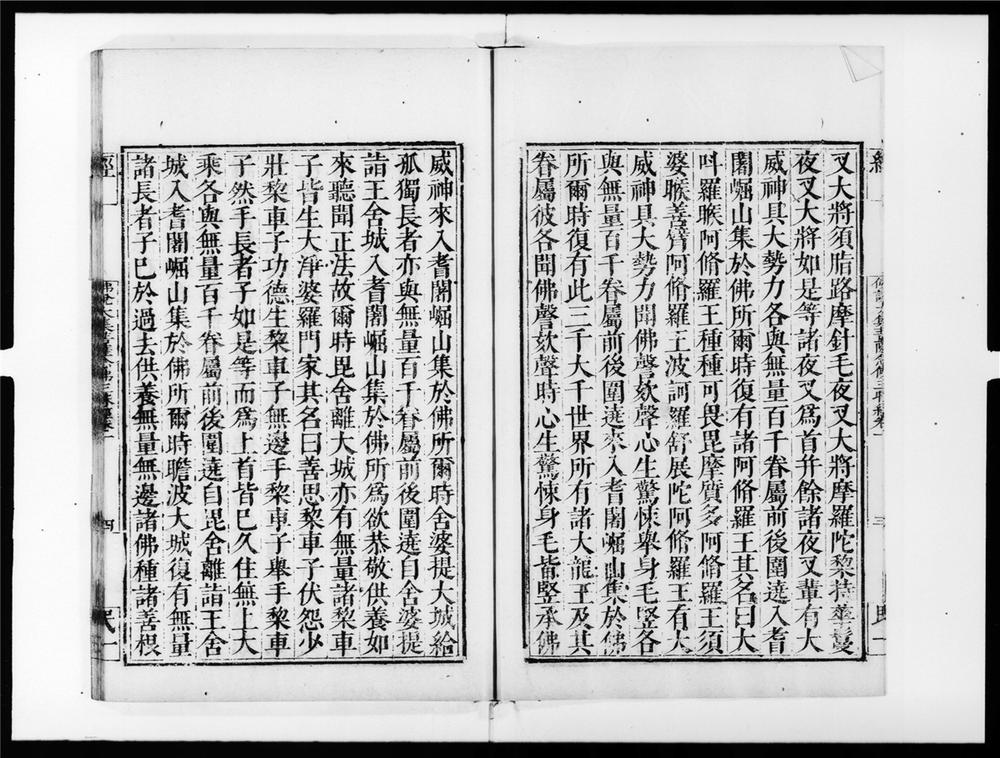 叉大將須脂路摩針毛夜叉大將摩羅陀黎持華鬘
夜叉大將如是等諸夜叉爲首并餘諸夜叉輩有大
威神具大勢力各與無量百千眷屬前後圍遶入耆
闍崛山集於佛所爾時復有諸阿脩羅王其名曰大
呌羅睺阿脩羅王種種可畏毘摩質多阿脩羅王須
婆睺善臂阿脩羅王波訶羅舒展陀阿脩羅王有大
威神具大勢力聞佛謦欬聲心生驚悚舉身毛竪各
與無量百千眷屬前後圍遶來入耆闍崛山集於佛
所爾時復有此三千大千世界所有諸大龍王及其
眷屬彼各聞佛謦欬聲時心生驚悚身毛皆竪承佛
經
三
民一
威神來入耆闍崛山集於佛所爾時舍婆提大城給
孤獨長者亦與無量百千眷屬前後圍遶自舍婆提
詣王舍城入耆闍崛山集於佛所爲欲恭敬供養如
來聽聞正法故爾時毘舍離大城亦有無量諸黎車
子皆生大淨婆羅門家其名曰善思黎車子伏怨少
壯黎車子功德生黎車子無邊手黎車子舉手黎車
子然手長者子如是等而爲上首皆已久住無上大
乘各與無量百千眷屬前後圍遶自毘舍離詣王舍
城入耆闍崛山集於佛所爾時瞻波大城復有無量
諸長者子已於過去供養無量無邊諸佛種諸善根
經
四
民一